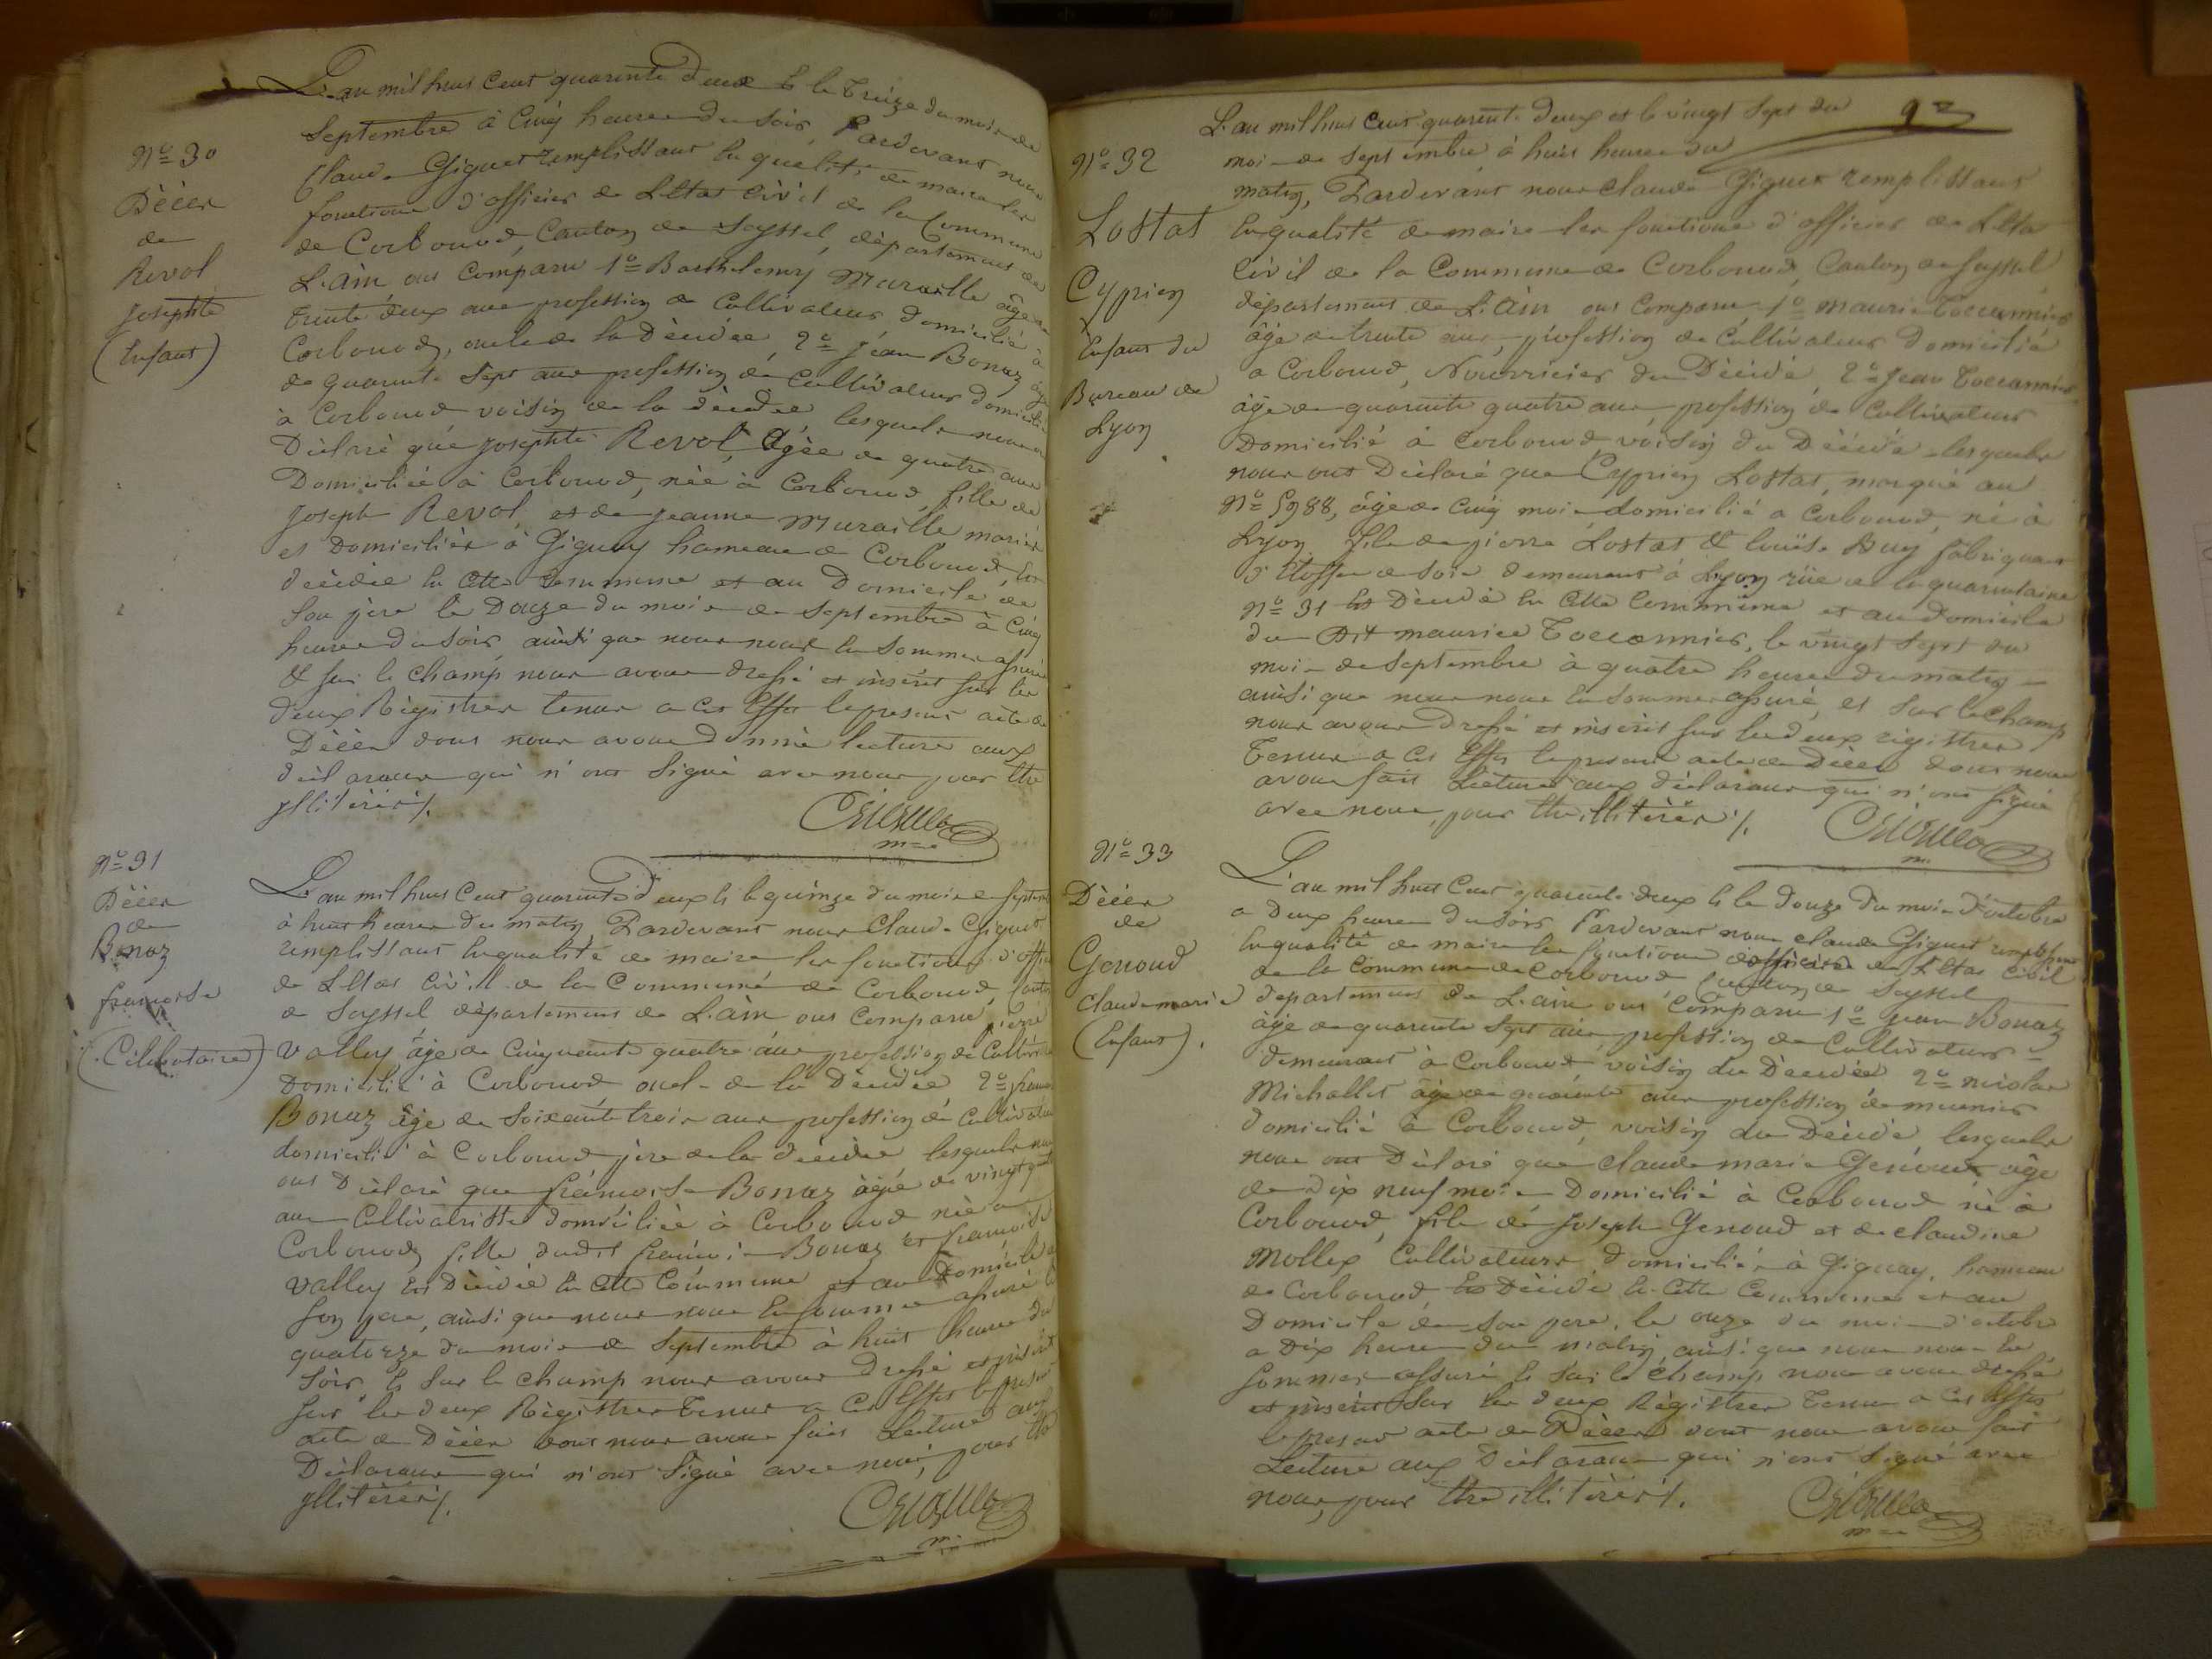 L'an mil huit Cent quarante deux & le Treize du mois de
Septembre à Cinq heures du Soir, Pardevant nous
Claude Giguet remplissant En qualité de maire les
fonctions d'officier de L'Etat Civil de la Commune
de Corbonod, Canton de Seyssel, département de
L'Ain ont Comparu 1º Barthelemy Muraille âgé de
trente deux ans profession de Cultivateur, domicilié à
Corbonod, oncle de la Décédée, 2º Jean Bonaz âgé
de quarante Sept ans profession de Cultivateur domicilié
à Corbonod voisin de la décédée lesquels nous ont
Déclaré que Josephte Revol, Agée de quatre ans
Domiciliée à Corbonod, née à Corbonod, fille de
Joseph Revol, et de Jeanne Muraille mariés
et Domiciliés à Gignay hameau de Corbonod, Est
décédée En Cette Commune et au Domicile de
Son père le Douze du mois de Septembre à Cinq
heures du Soir, ainsi que nous nous En Sommes assuré
& sur le Champ nous avons dressé et inscrit sur les
deux Régistres tenus a Cet Effet le present acte de
Décès dont nous avons donné lecture aux
déclarants qui n'ont Signé avec nous pour Etre
yllitérés /.
Nº 30
Décès
de
Revol
Josephte
(Enfant)
Nº 31
Décès
de
Bonaz
françoise
(Célibataire)
L'an mil huit Cent quarante deux & le quinze du mois de Septembre
à huit heures du matin, Pardevant nous Claude Giguet
remplissant En qualité de maire les fonctions d'officier
de L'Etat Civil de la Commune de Corbonod, Canton
de Seyssel département de L'Ain ont Comparu pierre
Valley âgé de Cinquante quatre ans profession de Cultivateur
Domicilié à Corbonod, oncle de la Décédée 2º françois
Bonaz âgé de Soixante trois ans profession de Cultivateur
domicilié à Corbonod père de la décédée lesquels nous
ont Déclaré que françoise Bonaz âgée de vingt quatre
ans Cultivatrisse domiciliée à Corbonod née a
Corbonod, fille dudit françois Bonaz & françoise
Valley Est Décédée En Cette Commune et au Domicile de
Son pere, ainsi que nous nous En sommes assuré le
quatorze du mois de Septembre à huit heures du
Soir, & Sur le champ nous avons Dressé et inscrit
Sur les deux Régistres Tenus a Cet Effet le present
acte de Décès dont nous avons fait Lecture aux
Déclarants qui n'ont Signé avec nous, pour Etre
yllitérés /.
93
L'an mil huit Cent quarante Deux et le vingt Sept du
mois de Septembre à huit heures du
matin, Pardevant nous Claude Giguet remplissant
En qualité de maire les fonctions d'officier de L'Etat
Civil de la Commune de Corbonod, Canton de Seyssel,
département de L'Ain ont Comparu, 1º Maurice Toccannier
âgé de trente ans, profession de Cultivateur Domicilié
a Corbonod, Nourricier du Décédé, 2º Jean Toccannier
âgé de quarante quatre ans profession de Cultivateur
Domicilié à Corbonod voisin du Décédé lesquels
nous ont Déclaré que Cyprien Lostat, marqué au
Nº 5988, âgé de Cinq mois domicilié a Corbonod, né à
Lyon, fils de pierre Lostat & Louise Buy fabriquant
d'Etoffe de Soie demeurant à Lyon rüe de la quarantaine
Nº 31 Est Décédé En Cette Commune et au domicile
du Dit maurice Toccannier, le vingt Sept du
mois de Septembre à quatre heures du matin
ainsi que nous nous En sommes assuré, et Sur le Champ
nous avons Dressé et inscrit sur les deux régistres
Tenus a Cet Effet le present acte de Décès dont nous
avons fait Lecture aux déclarants qui n'ont signé
avec nous, pour Etre illitérés /.
Nº 32
Lostat
Cyprien
Enfant du
Bureau de
Lyon
Nº 33
Décès
de
Genoud
Claude marie
(Enfant).
L'an mil huit Cent quarante deux & le Douze Du mois D'octobre
a Deux heures du Soir Pardevant nous claude Giguet remplissant
En qualité de maire les fonctions d'officier de L'Etat Civil
de la Commune de Corbonod Canton de Seyssel
département de L'Ain ont Comparu 1º Jean Bonaz
âgé de quarante Sept ans, profession de Cultivateur
demeurant à Corbonod voisin du Décédé 2º nicolas
Michallet âgé de quarante ans profession de meunier
domicilié à Corbonod, voisin du Décédé, lesquels
nous ont Déclaré que Claude marie Genoud âgé
de Dix neuf mois Domicilié à Corbonod né à
Corbonod, fils de Joseph Genoud et de claudine
Mollex Cultivateurs domiciliés à Gignay, hameau
de Corbonod, Est Décédé En Cette Commune et au
Domicile de Son pere, le onze du mois d'octobre
a Dix heures du matin, ainsi que nous nous En
Sommes assuré & Sur le champ nous avons dressé
et inscrit Sur les deux Régistres Tenus a Cet Effet
le present acte de Décès dont nous avons fait
Lecture aux Déclarants qui n'ont Signé avec
nous, pour Etre illitérés /.